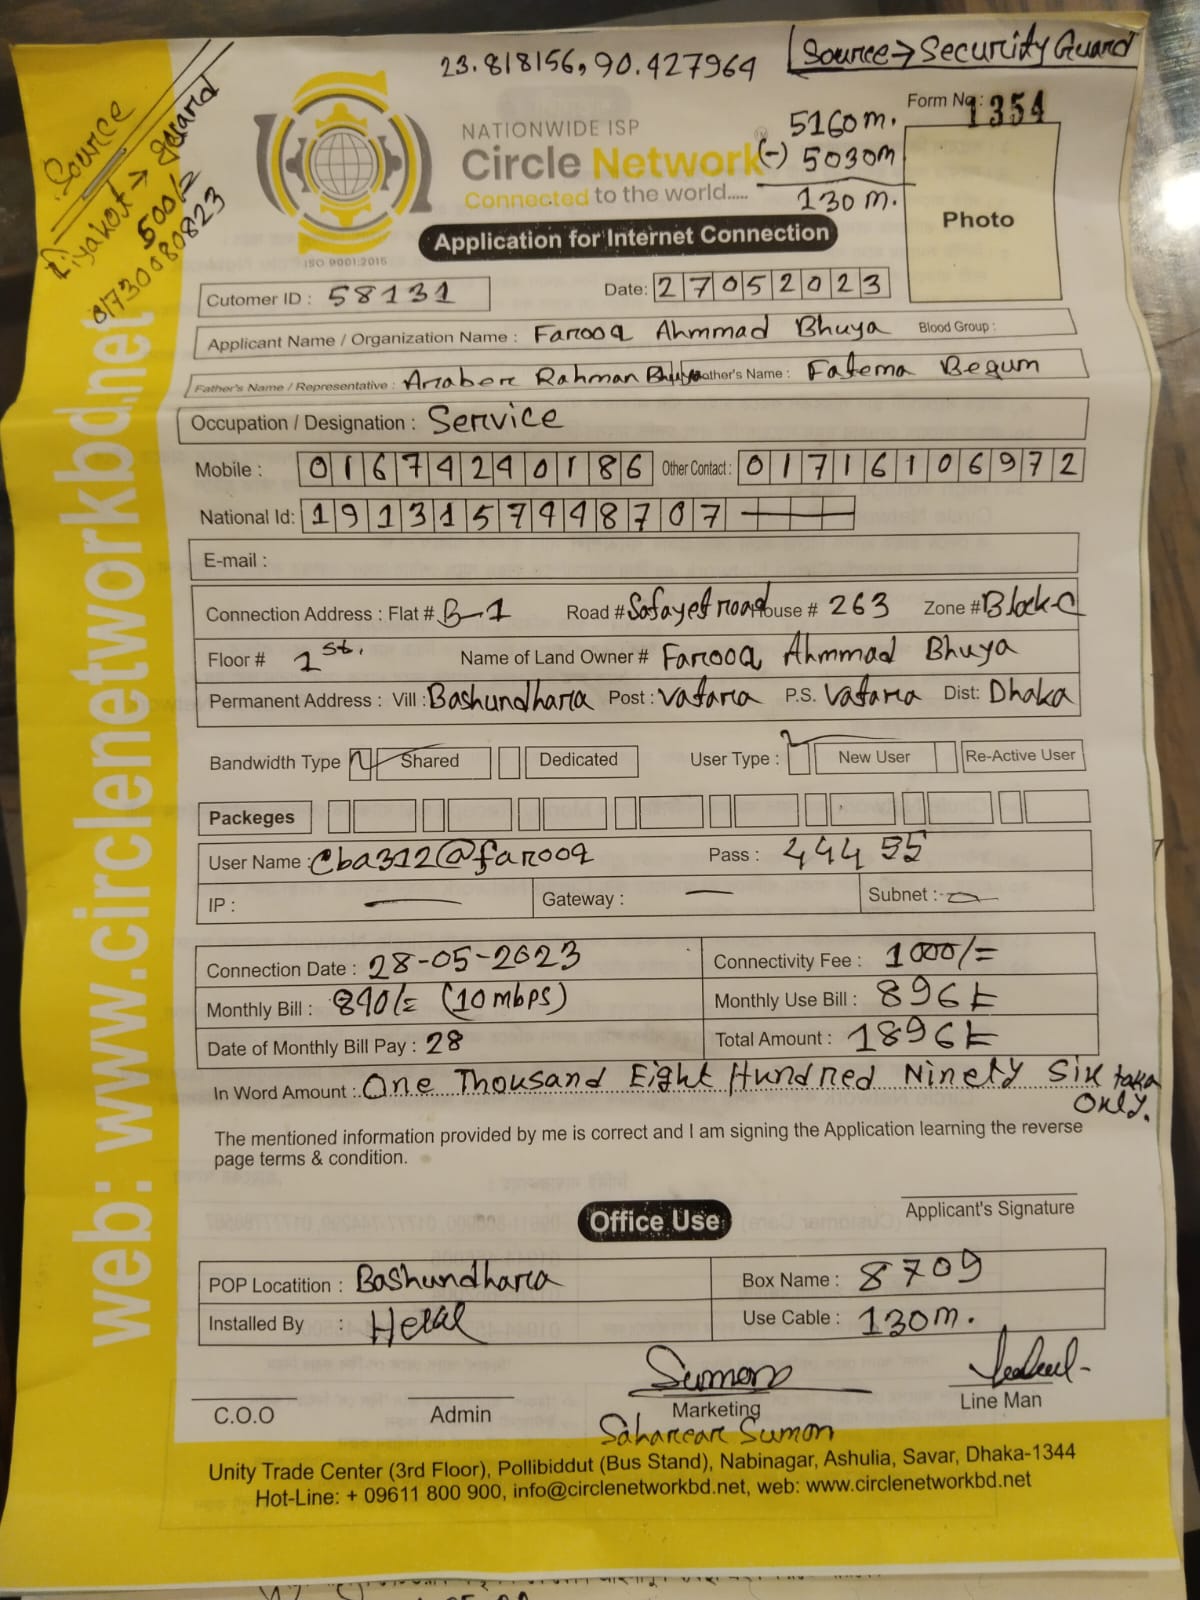 23.818156, 90.427964
Source → Security Guard
Source
Liyakot → guard
500/=
01730080823
Form No : 1354
NATIONWIDE ISP
Circle Network
Connected to the world.....
ISO 9001:2015
5160 m.
(-) 5030 m
130 m.
Photo
Application for Internet Connection
Cutomer ID : 58131
Date: 27052023
Applicant Name / Organization Name : Farooq Ahmmad Bhuya Blood Group :
Father's Name / Representative : Arabor Rahman Bhuya Mother's Name : Fatema Begum
Occupation / Designation : Service
Mobile : 01674240186 Other Contact : 01716106972
National Id: 19131579448707
E-mail :
Connection Address : Flat # B-1 Road # Safayet road House # 263 Zone # Block-C
Floor # 1st. Name of Land Owner # Farooq Ahmmad Bhuya
Permanent Address : Vill : Bashundhara Post : Vatara P.S. Vatara Dist: Dhaka
Bandwidth Type Shared Dedicated User Type : New User Re-Active User
Packeges
User Name : Cba312@farooq Pass : 444455
IP : — Gateway : — Subnet : —
Connection Date : 28-05-2023 Connectivity Fee : 1000/=
Monthly Bill : 890/= (10 mbps) Monthly Use Bill : 896 t
Date of Monthly Bill Pay : 28 Total Amount : 1896 t
In Word Amount : One Thousand Eight Hundred Ninety Six taka only.
The mentioned information provided by me is correct and I am signing the Application learning the reverse
page terms & condition.
Applicant's Signature
Office Use
POP Locatition : Bashundhara Box Name : 8709
Installed By : Helal Use Cable : 130 m.
Sumon
C.O.O Admin Marketing Line Man
Saharear Sumon
Unity Trade Center (3rd Floor), Pollibiddut (Bus Stand), Nabinagar, Ashulia, Savar, Dhaka-1344
Hot-Line: + 09611 800 900, info@circlenetworkbd.net, web: www.circlenetworkbd.net
web: www.circlenetworkbd.net